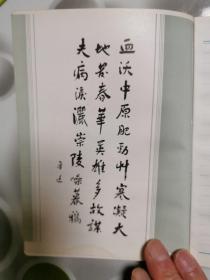 血沃中原肥勁艸寒凝大
地發春華英雄多故謀
夫病淚灑崇陵噪暮鴉
魯迅